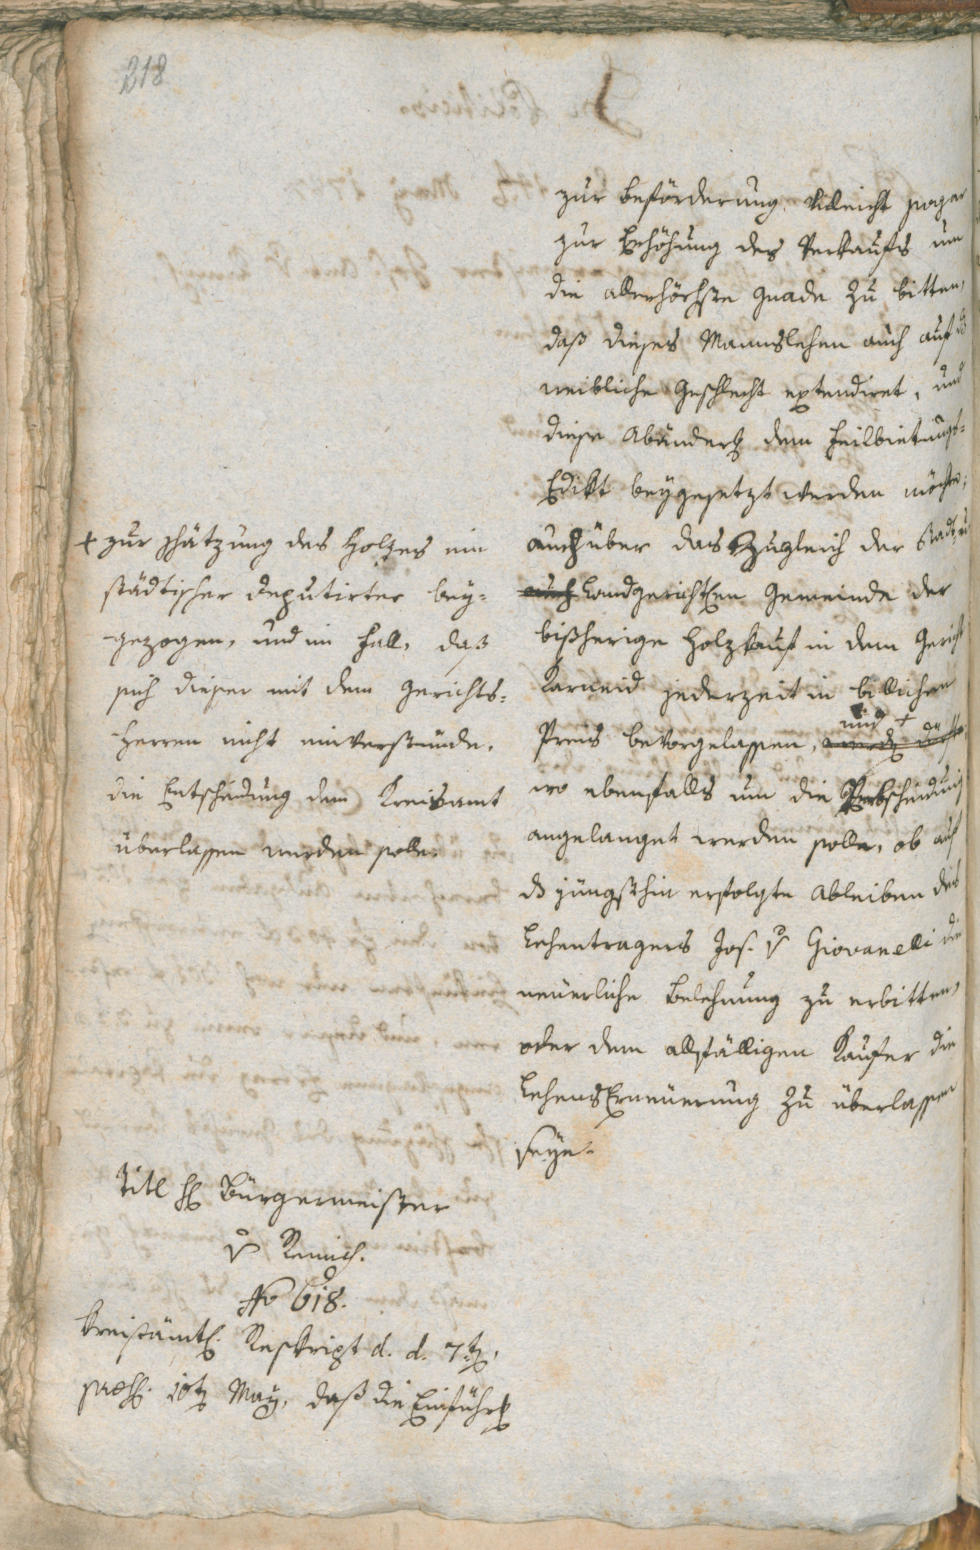 218
zur Beförderung, villeicht sogar
zur Erhöhung des Verkaufs um
die allerhöchste Gnade zu bitten,
daß dieses Mannslehen auch auf
weibliche Geschlecht extendiret, und
diese Abänderg dem Feilbietungs-
Edikt beygesetzt werden möchte;
auch über das zugleich der Stadt
auch Landgerichtlen Gemeinde der
bißherige Holzkauf in dem Gericht
Karneid jederzeit in billichen
Preis bevorgelassen, und +
wo ebenfalls um die Verbscheidung
angelanget werden solle, ob auf
ds jüngsthin erfolgte Ableiben des
Lehentragers Jos. v Giovanelli die
neuerliche Belehnung zu erbitten,
oder dem allfälligen Kaufer die
Lehens Erneuerung zu überlassen
seye.
+ zur schätzung des Holzes ein
städtischer Deputirter bey-
gezogen, und im Fall, daß
sich dieser mit dem Gerichts-
Herren nicht einverstunde,
die Entscheidung dem Kreisamt
überlassen werden solle.
Titl H Bürgermeister
v Remich.
No 618.
Kreisämtl. Reskript d. d. 7t,
praes. 10t May, daß die Einführg